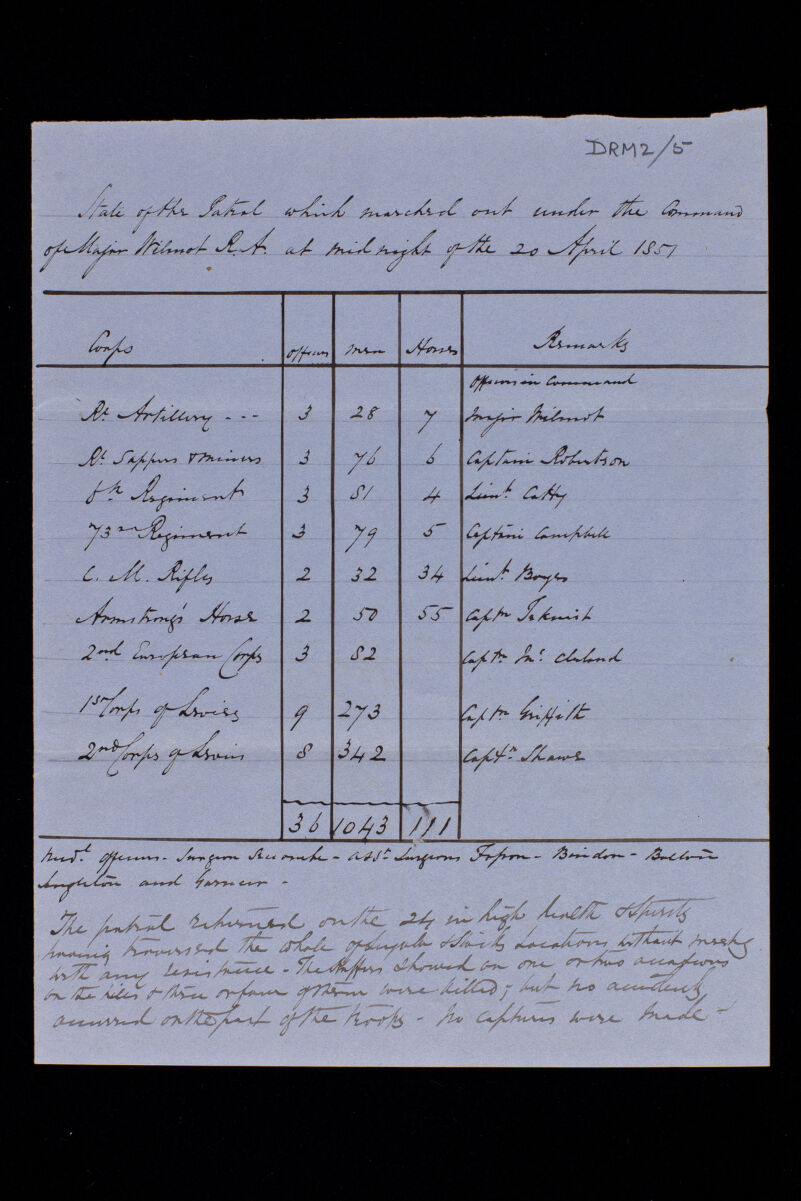 DRM2/5
State of the Patrol which marched out under the Command
of Major Wilmot R.A. at midnight of the 20 April 1851
Corps officers men Horses Remarks
officers in Command
Rl. Artillery --- 3 28 7 Major Wilmot
Rl. Sappers & miners 3 76 6 Captain Robertson
6th Regiment 3 81 4 Lieut. Catty
73rd Regiment 3 79 5 Captain Campbell
C. M. Rifles 2 32 34 Lieut. Boyes
Armstrong's Horse 2 50 55 Captn
2nd European Corps 3 82 Captn
1st Corps of Levies 9 273 Captn Griffith
2nd Corps of Levies 8 342 Captn Shawe
36 1043 111
Medl. officers - Surgeon - asst. Surgeons - Bindon -
Singleton and -
The patrol returned on the 24 in high health & spirits
having traversed the whole of & Locations without meeting
with any resistance - The Kaffirs showed on one or two occasions
on the hills & three or four of them were killed; but no accidents
occurred on the part of the troops - no captures were made -